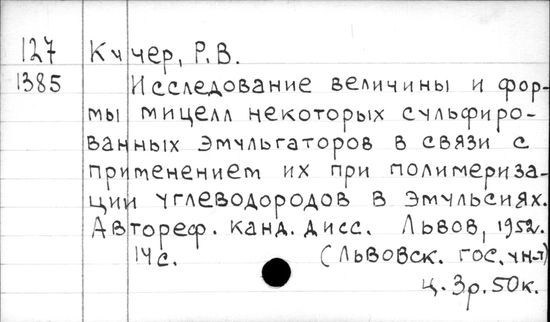 127 Кучер, Р.В.
1385 Исследование величины и фор-
мы мицелл некоторых сульфиро-
ванных эмульгаторов в связи с
применением их при полимериза-
ции углеводородов в эмульсиях.
Автореф. канд. дисс. Львов, 1952.
14с. (Львовск. гос. ун-т)
ц. 3р. 50к.